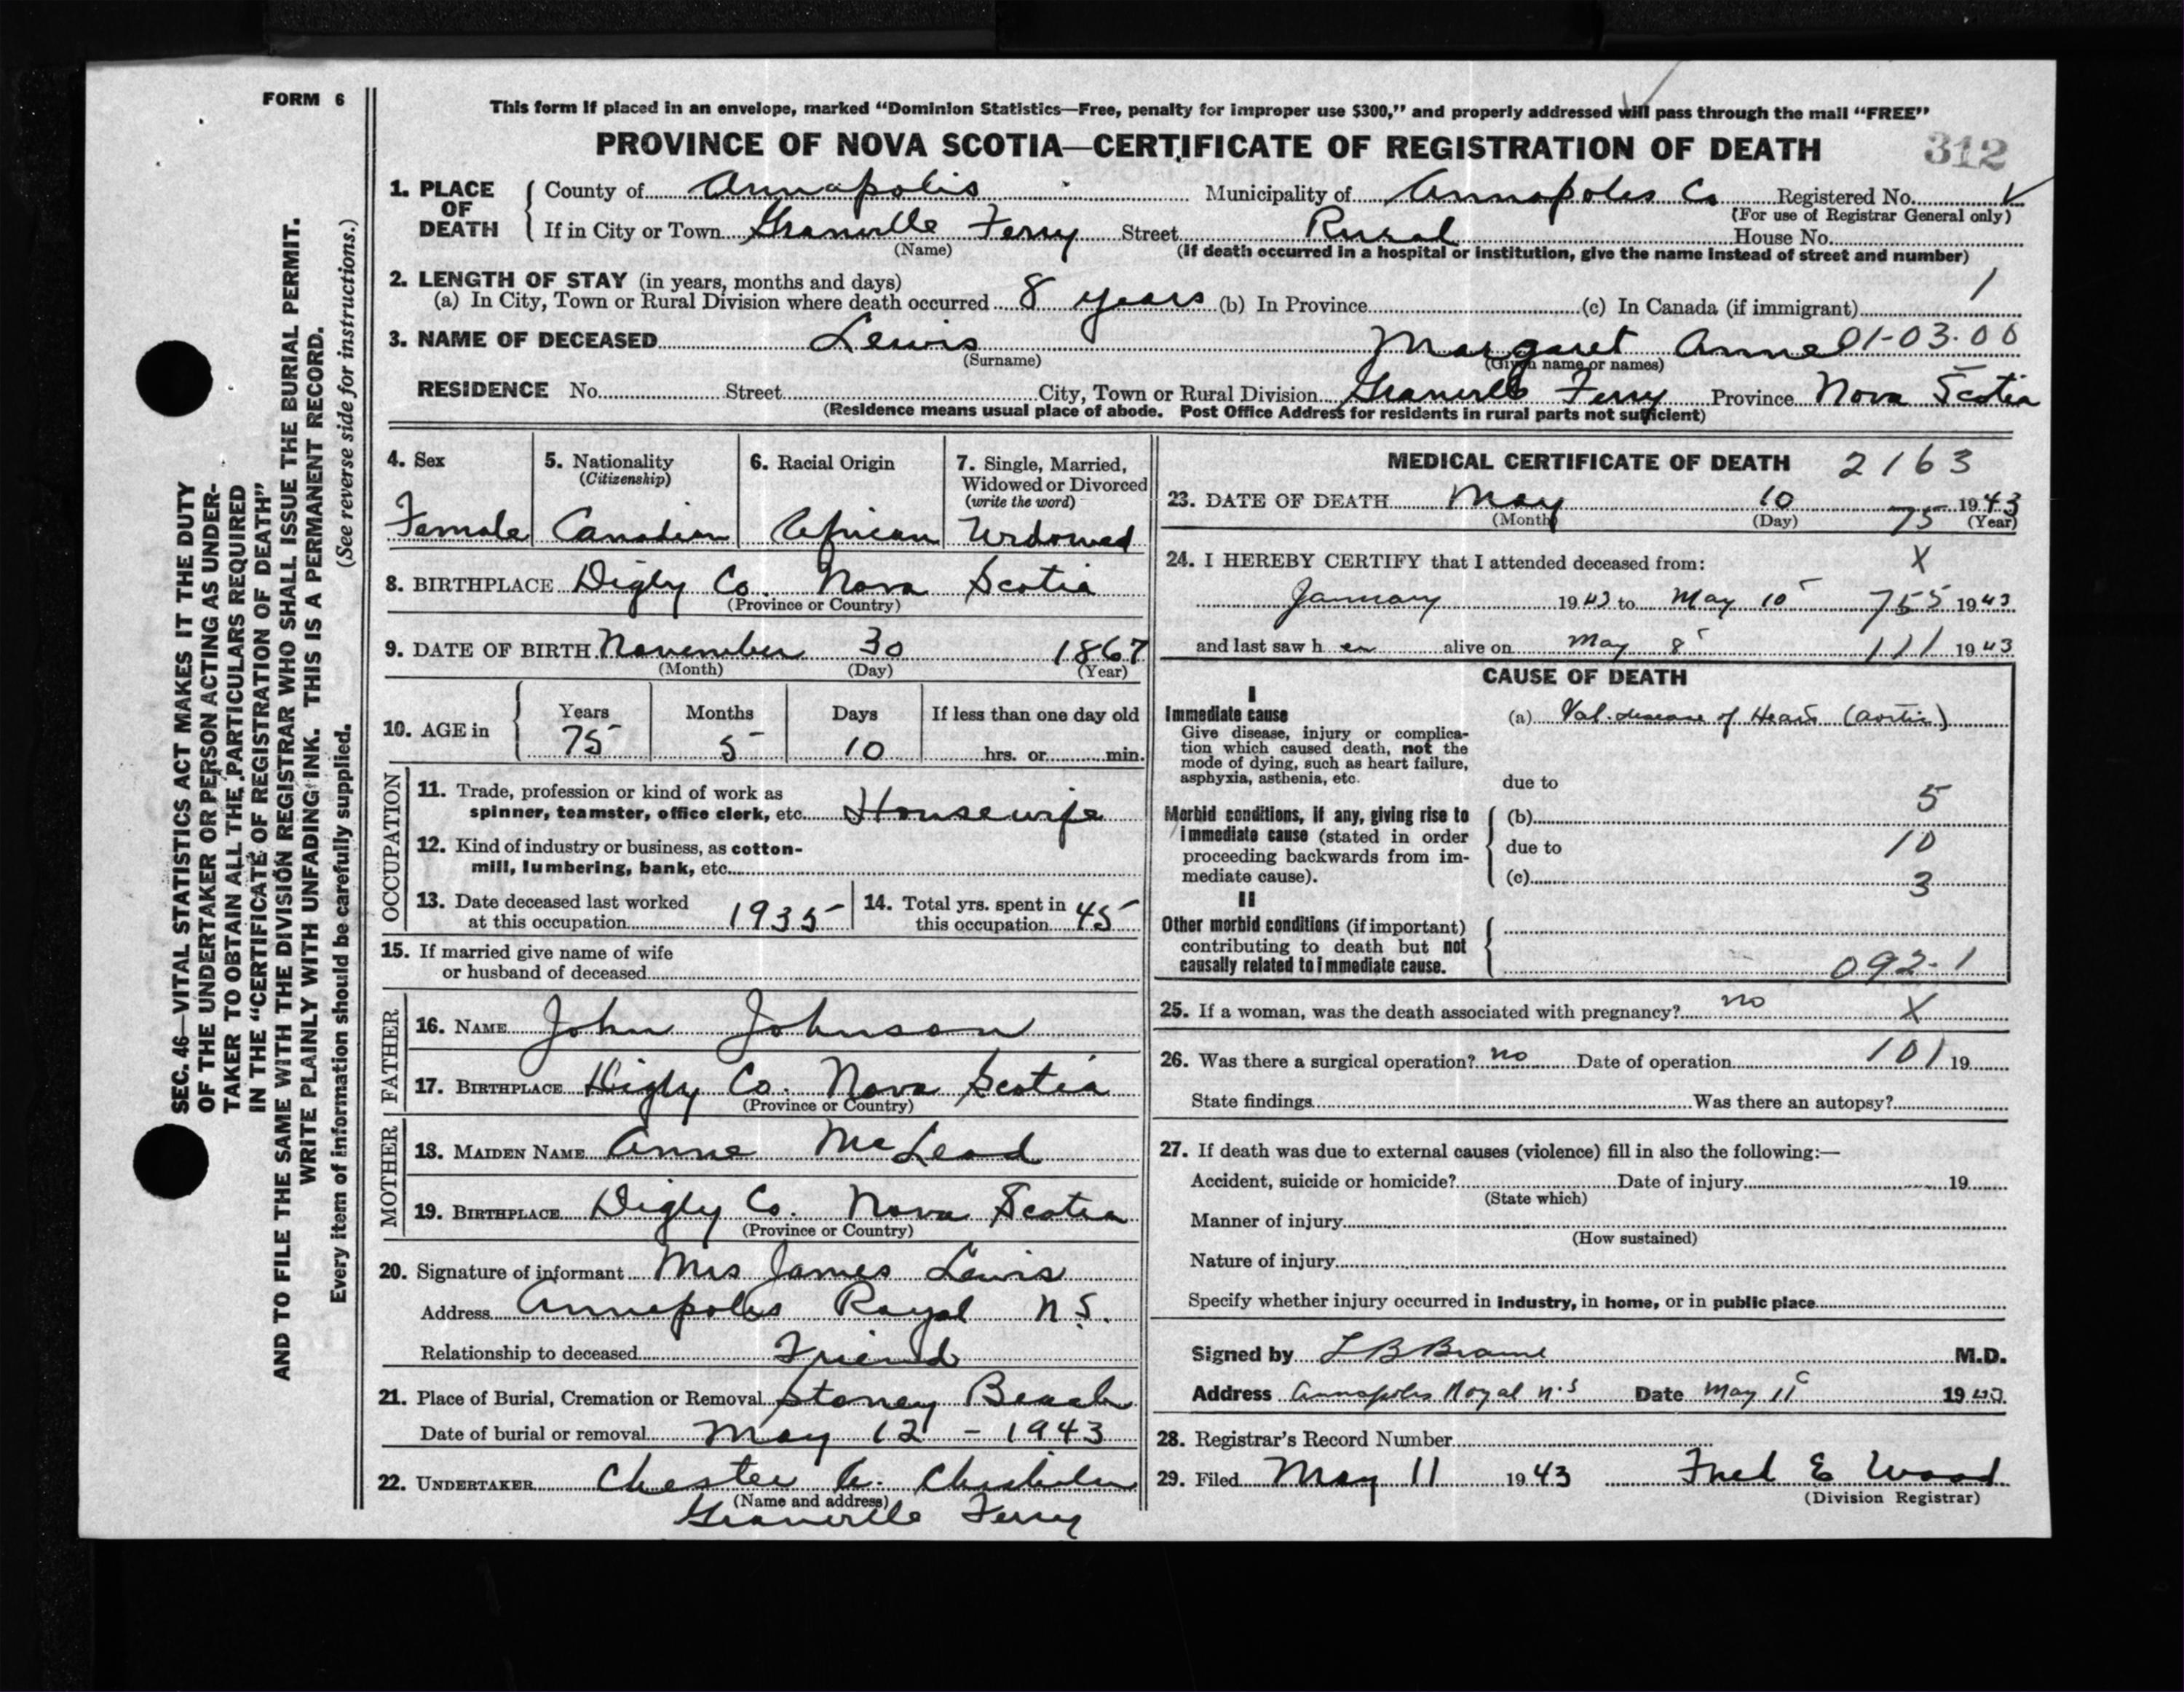 FORM 6
This form if placed in an envelope, marked "Dominion Statistics—Free, penalty for improper use $300," and properly addressed will pass through the mail "FREE"
PROVINCE OF NOVA SCOTIA—CERTIFICATE OF REGISTRATION OF DEATH 312
SEC. 46—VITAL STATISTICS ACT MAKES IT THE DUTY
OF THE UNDERTAKER OR PERSON ACTING AS UNDER-
TAKER TO OBTAIN ALL THE PARTICULARS REQUIRED
IN THE "CERTIFICATE OF REGISTRATION OF DEATH"
AND TO FILE THE SAME WITH THE DIVISION REGISTRAR WHO SHALL ISSUE THE BURIAL PERMIT.
WRITE PLAINLY WITH UNFADING INK. THIS IS A PERMANENT RECORD.
Every item of information should be carefully supplied. (See reverse side for instructions.)
1. PLACE OF DEATH
County of Annapolis Municipality of Annapolis Co Registered No.
(For use of Registrar General only)
If in City or Town Granville Ferry Street Rural House No.
(Name) (If death occurred in a hospital or institution, give the name instead of street and number)
2. LENGTH OF STAY (in years, months and days) 1
(a) In City, Town or Rural Division where death occurred 8 years (b) In Province (c) In Canada (if immigrant)
3. NAME OF DECEASED Lewis Margaret Anne 01-03-00
(Surname) (Given name or names)
RESIDENCE No. Street City, Town or Rural Division Granville Ferry Province Nova Scotia
(Residence means usual place of abode. Post Office Address for residents in rural parts not sufficient)
4. Sex 5. Nationality 6. Racial Origin 7. Single, Married,
(Citizenship) Widowed or Divorced
(write the word)
Female Canadian African Widowed
8. BIRTHPLACE Digby Co. Nova Scotia
(Province or Country)
9. DATE OF BIRTH November 30 1867
(Month) (Day) (Year)
10. AGE in Years Months Days If less than one day old
75 5 10 hrs. or min.
OCCUPATION
11. Trade, profession or kind of work as
spinner, teamster, office clerk, etc. Housewife
12. Kind of industry or business, as cotton-
mill, lumbering, bank, etc.
13. Date deceased last worked 14. Total yrs. spent in
at this occupation 1935 this occupation 45
15. If married give name of wife
or husband of deceased
FATHER
16. NAME John Johnson
17. BIRTHPLACE Digby Co. Nova Scotia
(Province or Country)
MOTHER
18. MAIDEN NAME Anne McLeod
19. BIRTHPLACE Digby Co. Nova Scotia
(Province or Country)
20. Signature of informant Mrs James Lewis
Address Annapolis Royal N.S.
Relationship to deceased Friend
21. Place of Burial, Cremation or Removal Stoney Beach
Date of burial or removal May 12 - 1943
22. UNDERTAKER Chester A. Chisholm
(Name and address)
Granville Ferry
MEDICAL CERTIFICATE OF DEATH 2163
23. DATE OF DEATH May 10 1943
(Month) (Day) 75 (Year)
24. I HEREBY CERTIFY that I attended deceased from: X
January 1943 to May 10 755 1943
and last saw her alive on May 8 111 1943
CAUSE OF DEATH
I
Immediate cause
Give disease, injury or complica-
tion which caused death, not the
mode of dying, such as heart failure,
asphyxia, asthenia, etc.
(a) Val. disease of Heart (aortic)
due to
5
Morbid conditions, if any, giving rise to
immediate cause (stated in order
proceeding backwards from im-
mediate cause).
(b)
due to 10
(c) 3
II
Other morbid conditions (if important)
contributing to death but not
causally related to immediate cause.
092-1
25. If a woman, was the death associated with pregnancy? no X
26. Was there a surgical operation? no Date of operation 101 19
State findings Was there an autopsy?
27. If death was due to external causes (violence) fill in also the following:—
Accident, suicide or homicide? Date of injury 19
(State which)
Manner of injury
(How sustained)
Nature of injury
Specify whether injury occurred in industry, in home, or in public place
Signed by L B Brame M.D.
Address Annapolis Royal N.S Date May 11 1943
28. Registrar's Record Number
29. Filed May 11 1943 Fred E Wood
(Division Registrar)